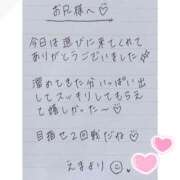 お兄様へ♡
今日は遊びに来てくれて
ありがとうございました
溜めてきた分いっぱい出
してスッキリしてもらえ
て嬉しかった〜♡
目指せ2回戦だね♡
えまより